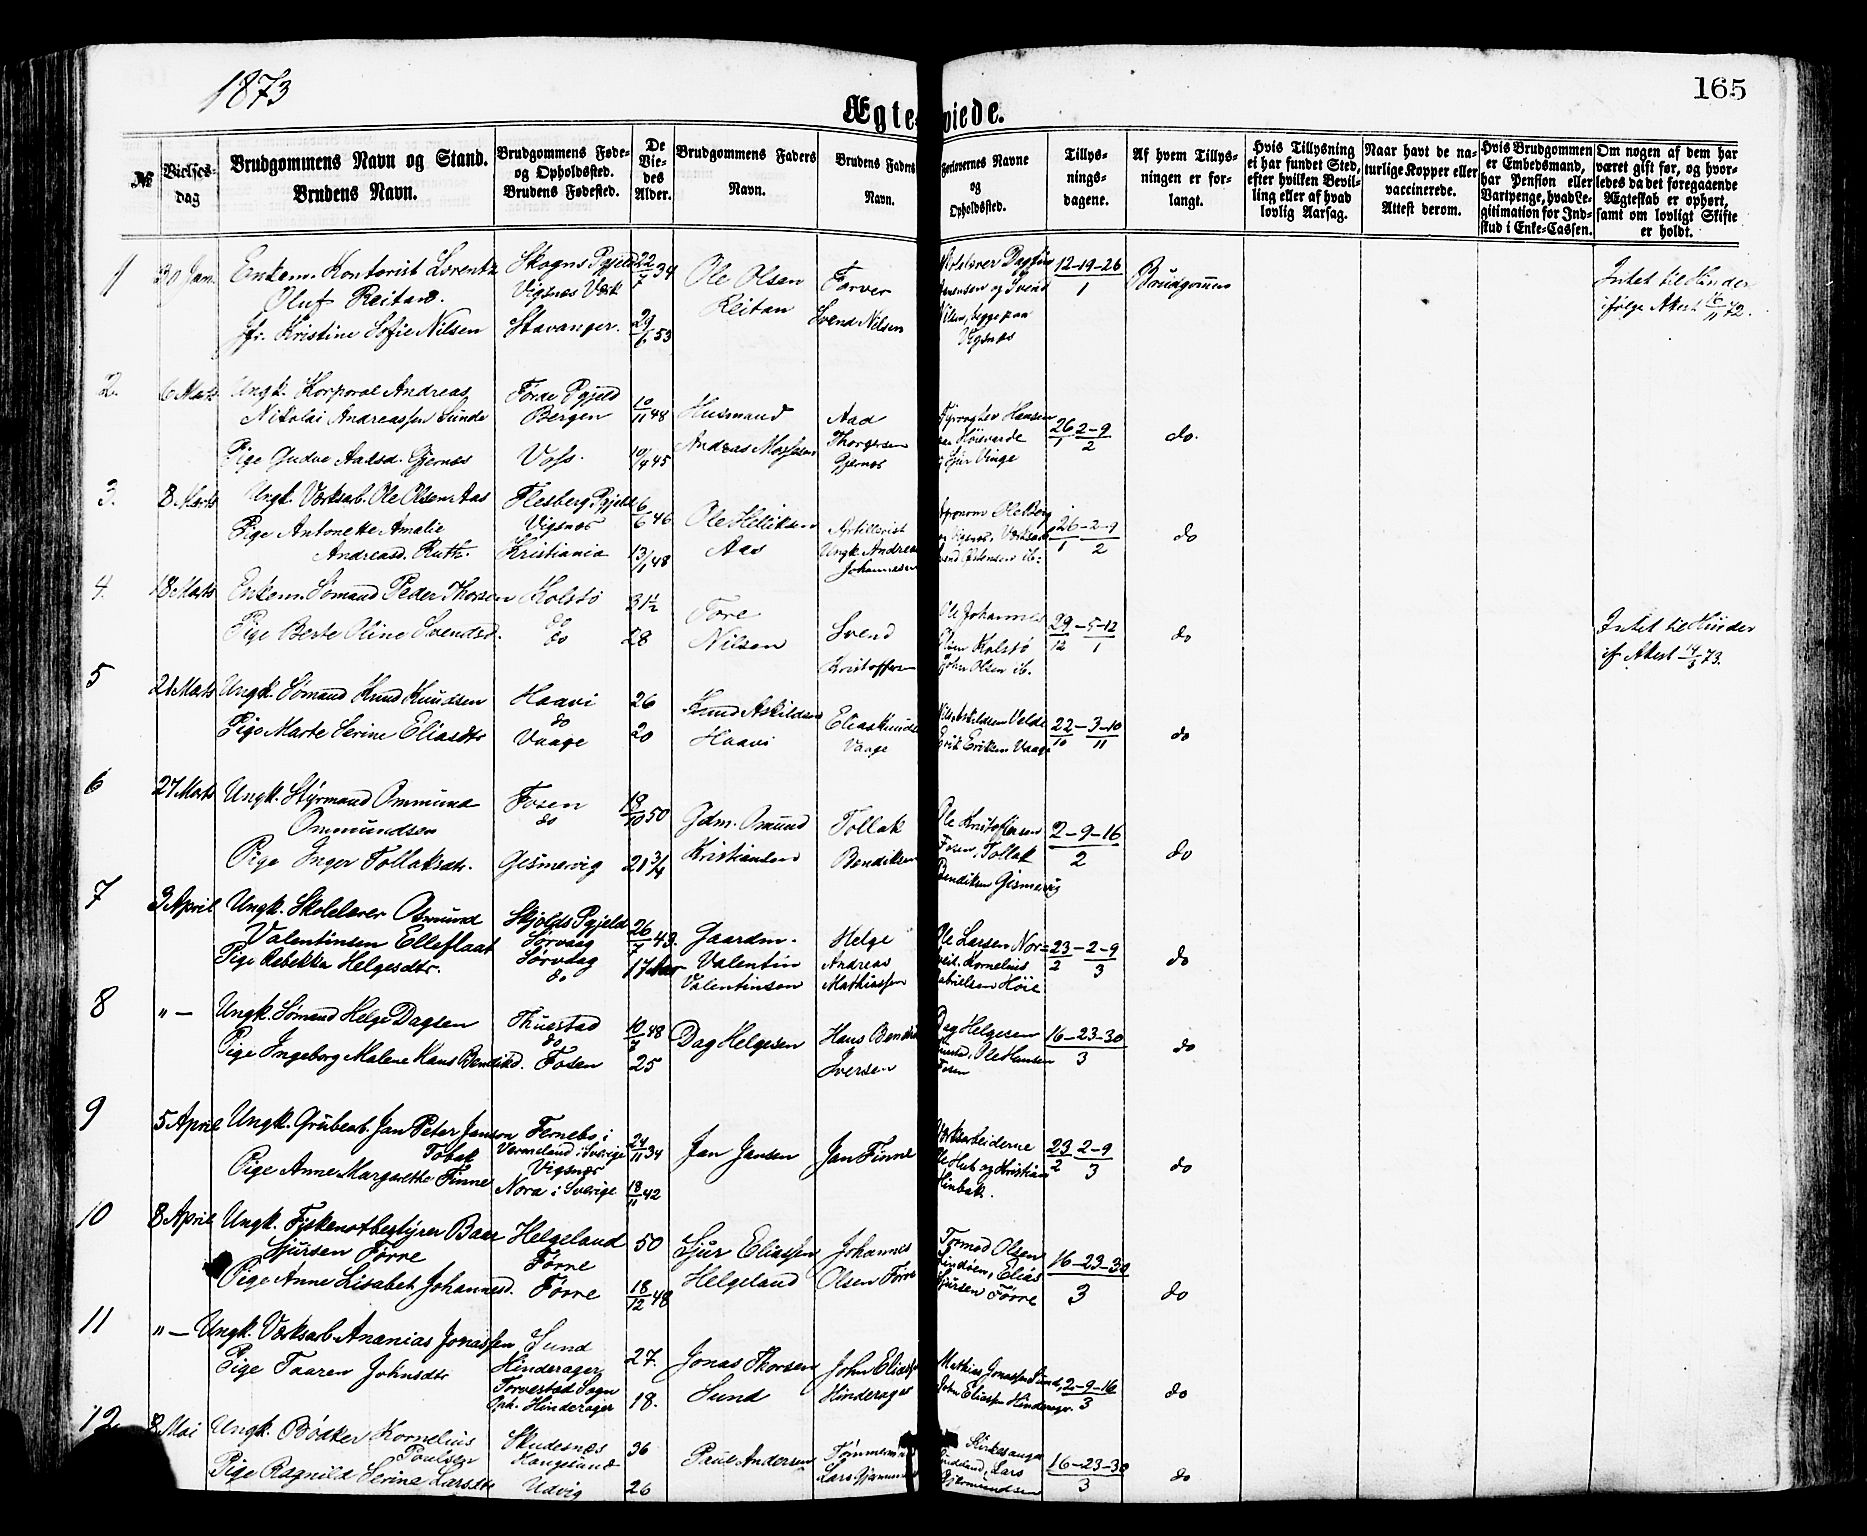 1873
165
Ægteviede.
№
Vielses-dag
Brudgommens Navn og Stand.
Brudens Navn.
Brudgommens Føde-
og Opholdssted.
Brudens Fødested.
De
Vie-
des
Alder.
Brudgommens Faders
Navn.
Brudens Faders
Navn.
Forlovernes Navne
og
Opholdssted.
Tillys-
nings-
dagene.
Af hvem Tillys-
ningen er for-
langt.
Hvis Tillysning
ei har fundet Sted,
efter hvilken Bevil-
ling eller af hvad
lovlig Aarsag.
Naar havt de na-
turlige Kopper eller
vaccinerede.
Attest derom.
Hvis Brudgommen
er Embedsmand,
har Pension eller
Vartpenge, hvad Le-
gitimation for Ind-
skud i Enke-Cassen.
Om nogen af dem har
været gift før, og hvor-
ledes da det foregaaende
Ægteskab er ophørt,
samt om lovligt Skifte
er holdt.
1 30 Jan. Enkem. Kontorist Lorentz
Oluf Reitan.
Jfr. Kristine Sofie Nilsen
Skogns Pgjeld
Vigsnes Værk
Stavanger.
22/7 34
29/6 53
Ole Olsen
Reitan
Farver
Svend Nilsen
Svend
Nilsen, begge paa
Vigsnæs
12-19-26/1
Brudgommen
Intet til Hinder
ifølge Attest 16/11 72.
2. 6 Marts Ungk. Korporal Andreas
Nikolai Andreassen Sunde
Pige Gudve Aadsd. Gjernes
Førde Pgjeld
Bergen
Voss.
10/11 48
10/4 45
Husmand
Andreas
Aad
Thorgersen
Gjernes
Fyrvogter Hansen
Sjur Vinge
26/1 2-9/2
do.
3. 8. Marts Ungk. Værksarb. Ole Olsen Aas
Pige Antonette Amalie
Andreasd. Ruth.
Flesberg Pgjeld
Vigsnæs
Kristiania
6/6 46
13/1 48
Ole
Aas
Artillerist
Ungk. Andreas
Johannesen
26/1-2-9/2
do
4. 18 Marts Enkem. Sømand Peder Thorsen
Pige Berte Oline Svendsd.
Kolstø
do
do
31½
28
Tore
Nilsen
Svend
Kristoffersen
Ole Johannes
Kolstø
John Olsen ib.
29/12-5-12/1
do
Intet til Hinder
if Attest 14/3 73.
5 21 Marts Ungk. Sømand Knud Knudsen
Pige Marte Serine Eliasdtr
Haavi
do
Vaage
26
20
Knud Askildsen
Haavi
Elias Knudsen
Vaage
Nils Askildsen Velde
Erik Eriksen Vaage
22/10-3-10/11
do
6 27 Marts Ungk. Styrmand Ommund
Ommundsen
Pige Inger Tollaksdtr.
Fosen
do
Gismervig
18/10 50
21 3/4
Gdm. Omund
Kristiansen
Tollak
Bendiksen
Ole Kristoffersen
Fosen, Tollak
Bendiksen Gismervig
2-9-16/2
do
7 3 April Ungk. Skolelærer Osmund
Valentinsen Elleflaat
Pige Rebekka Helgesdtr.
Skjolds Pgjeld
Sørvaag
Sørvaag
do
26/7 43.
17 Aar
Gaardm.
Valentin
Valentinsen
Helge
Andreas
Mathiassen
Ole Larsen Nor-
Kornelius
Gabrielsen Høie
23/2-2-9/3
do
8 „ — Ungk. Sømand Helge Dagsen
Pige Ingeborg Malene Hans Bendiksd.
Thuestad
do
Fosen
10/7 48
25
Dag Helgesen
Hans Bendik
Iversen
Dag Helgesen
Ole Hansen
Fosen
16-23-30/3
do
9 5 April Ungk. Grubearb. Jan Peter Janson
Tobak
Pige Anne Margarethe Finne
Fernebo i
Vermeland i Sverige
Vigsnæs
Nora i Sverige
24/11 34
18/11 42
Jan Jansen
Jan Finne
Værksarbeiderne
og Kristian
23/2 2-9/3
do
10 8 April Ungk. Fiskenotbestyrer Baar
Sjursen Førre
Pige Anne Lisabet Johannesd.
Helgeland
Førre
Førre
50
18/12 48
Sjur Eliassen
Helgeland
Johannes
Olsen Førre
Tormod Olsen
Lindøen, Elias
Sjursen Førre
16-23-30/3
do
11 „ — Ungk. Værksarb. Ananias Jonassen
Pige Taaren Johnsdtr
Sund
Hinderager,
Torvestad Sogn
Oph. Hinderager
27.
18.
Jonas Thorsen
Sund
John Eliass
Hinderager
Mathias Jonassen Sund,
John Eliassen Hinderager.
2-9-16/3
do
12. 8 Mai Ungk. Bødker Kornelius
Paulsen
Pige Ragnild Serine Larsdtr
Skudesnæs
Haugesund
Udvig
36
26
Paul Andersen
Tømmermand
Lars
Kirkesanger
Lars
Gjermundsen
16-23-30/3
do